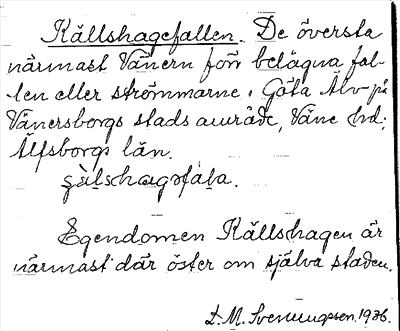 Källshagefallen. De översta
närmast Vänern förr belägna fal-
len eller strömmarne i Göta Älv på
Vänersborgs stads område, Väne hd,
Älfsborgs län.
Egendomen Källshagen är
närmast där öster om själva staden.
L. M. Svenungsson. 1926.